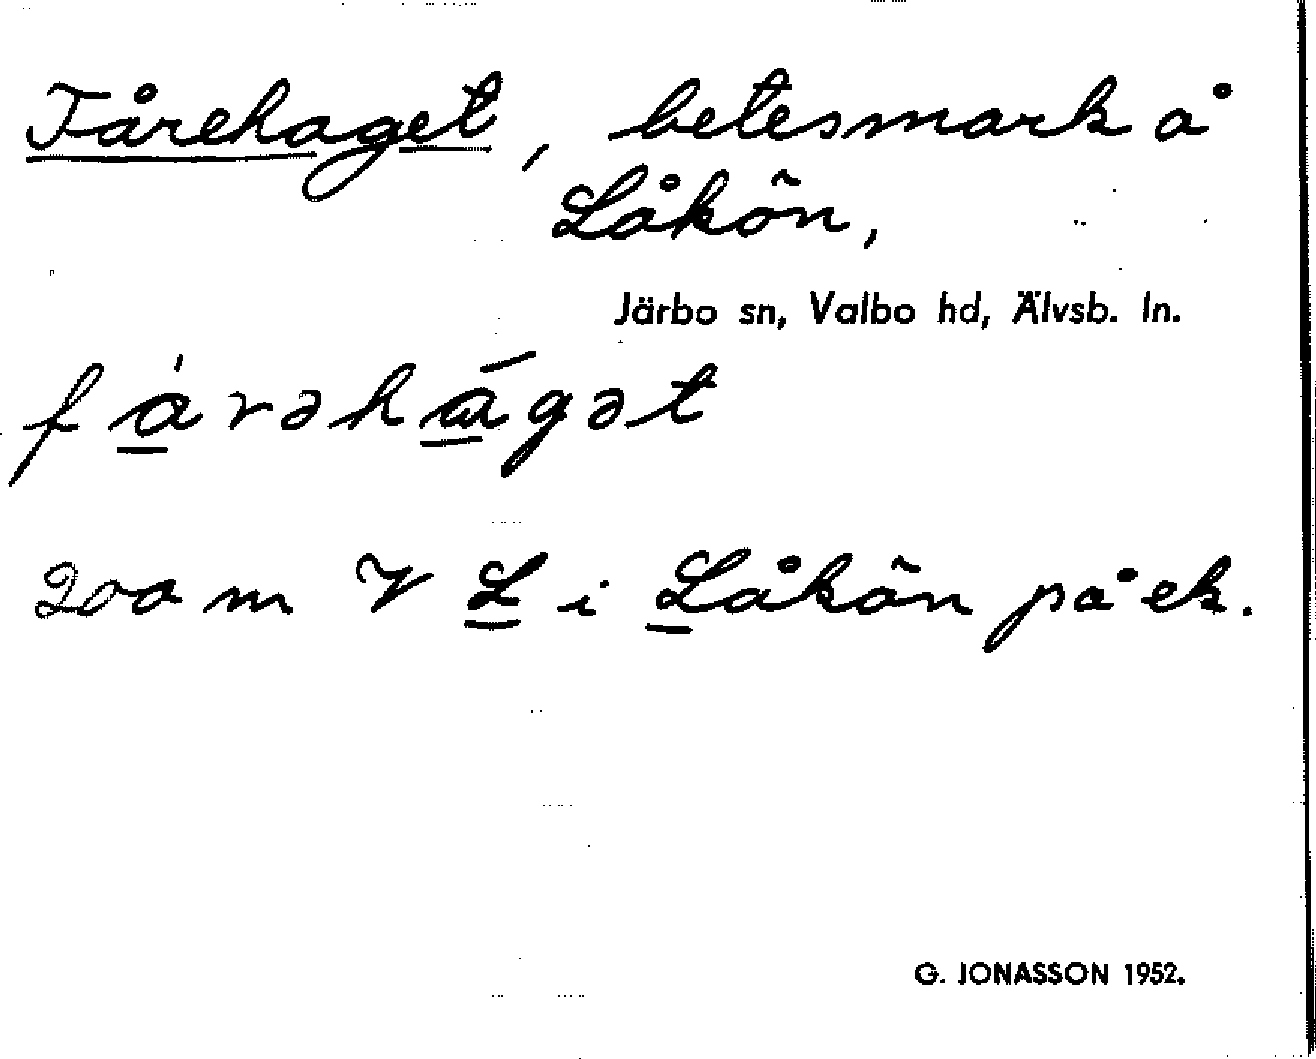 Fårehaget, betesmark å
Låkön,
Järbo sn, Valbo hd, Älvsb. ln.
fa̲̍rəhā̲gət
200 m V L̲ i L̲åkön på ek.
G. JONASSON 1952.